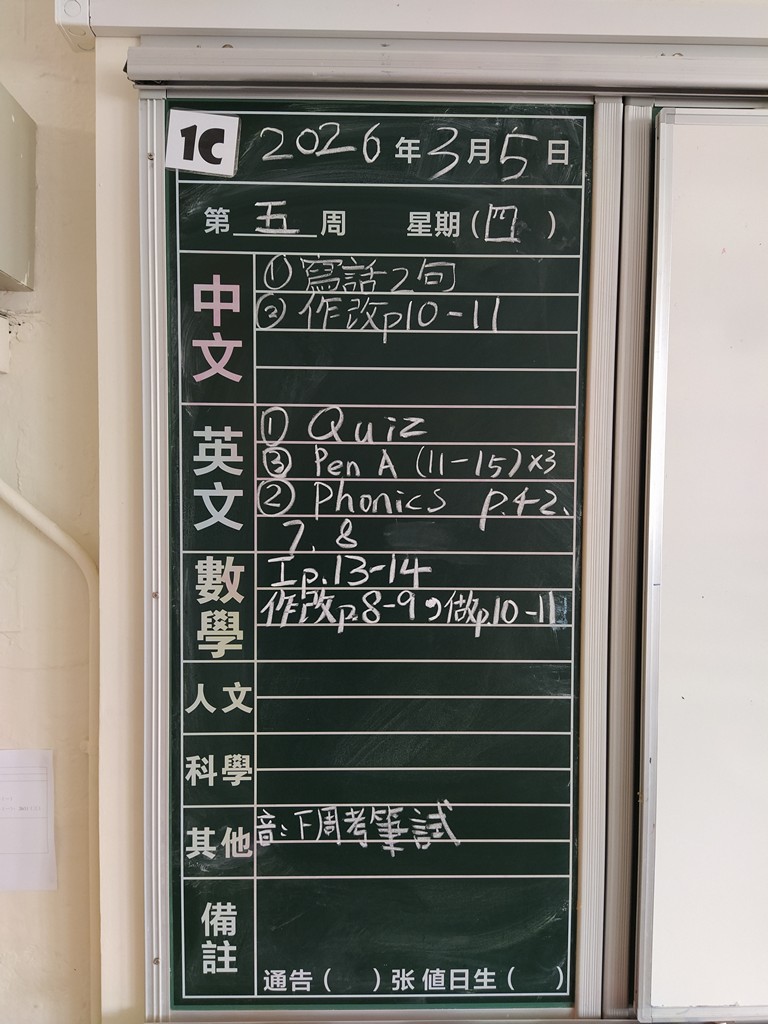 1C 2026年3月5日
第五周 星期(四)
中文
①寫話2句
②作改p10-11
英文
① Quiz
③ Pen A (11-15)×3
② Phonics p.42.
7. 8
數學
Ip.13-14
作改p.8-9,做p10-11
人文
科學
其他
音:下周考筆試
備註
通告( )张 值日生( )